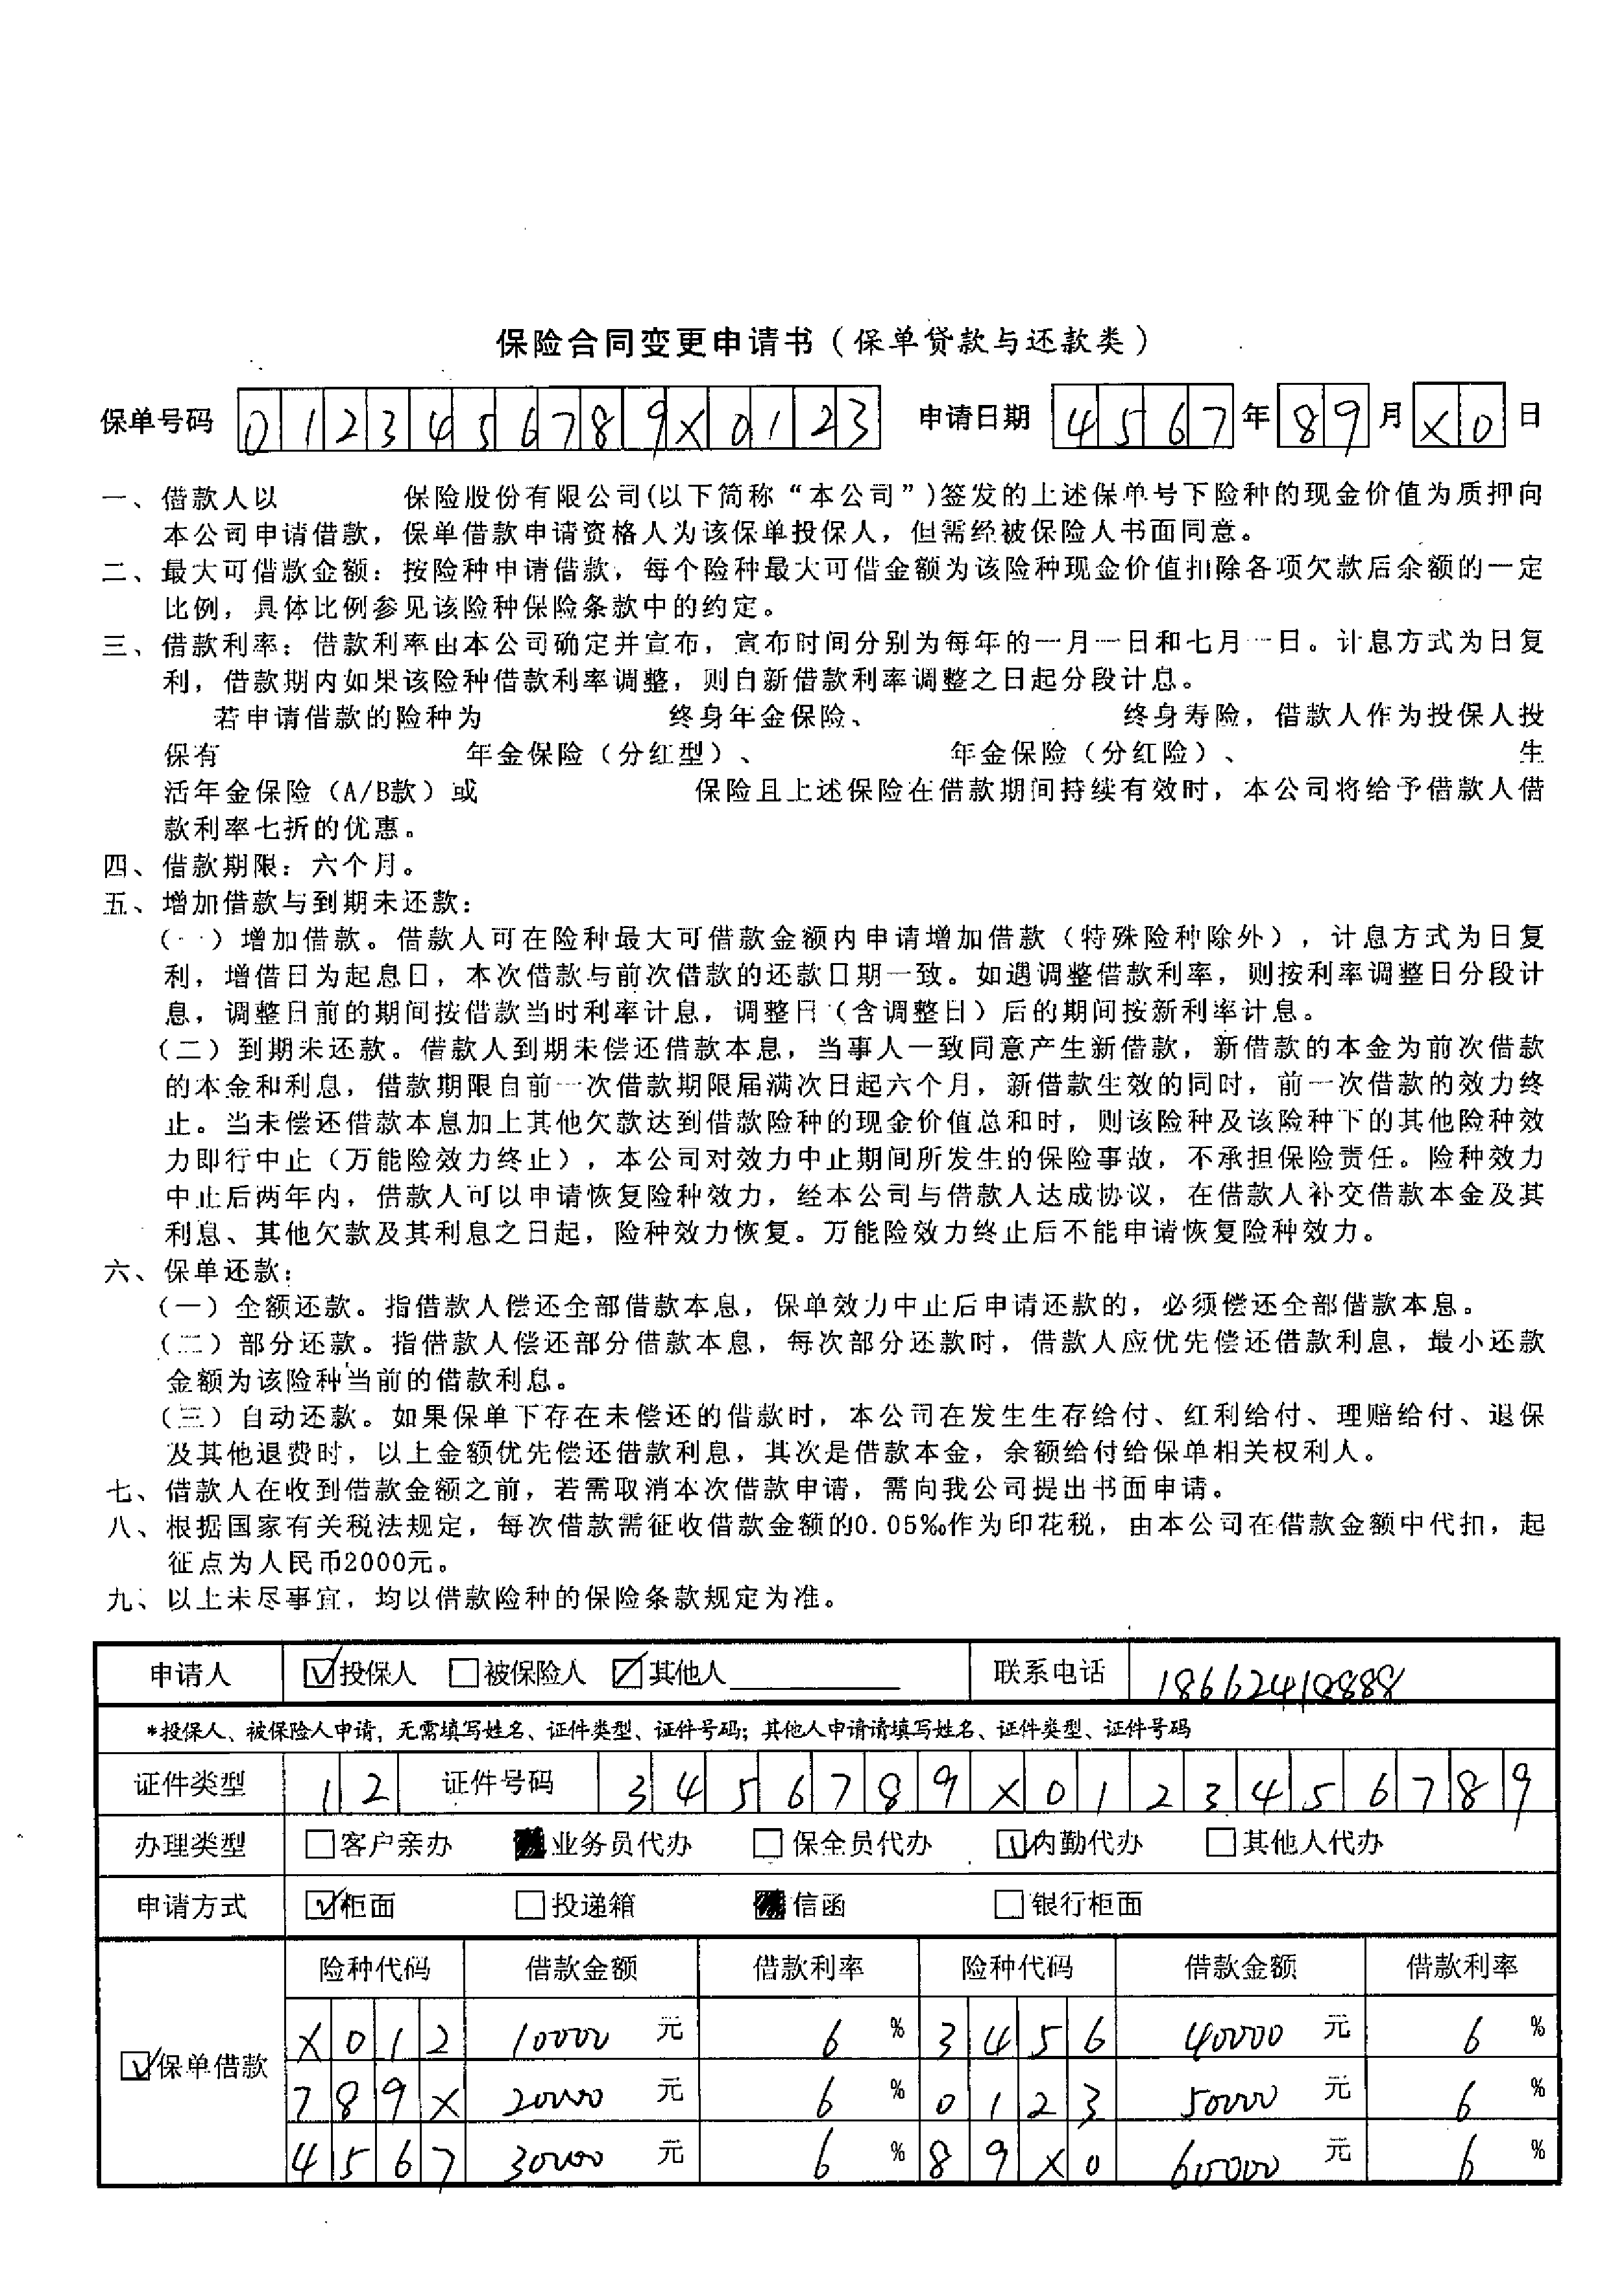 保险合同变更申请书（保单贷款与还款类）
保单号码 0123456789X0123 申请日期 4567年89月X0日
一、借款人以 保险股份有限公司(以下简称“本公司”)签发的上述保单号下险种的现金价值为质押向
本公司申请借款，保单借款申请资格人为该保单投保人，但需经被保险人书面同意。
二、最大可借款金额：按险种申请借款，每个险种最大可借金额为该险种现金价值扣除各项欠款后余额的一定
比例，具体比例参见该险种保险条款中的约定。
三、借款利率：借款利率由本公司确定并宣布，宣布时间分别为每年的一月一日和七月一日。计息方式为日复
利，借款期内如果该险种借款利率调整，则自新借款利率调整之日起分段计息。
若申请借款的险种为 终身年金保险、 终身寿险，借款人作为投保人投
保有 年金保险（分红型）、 年金保险（分红险）、 生
活年金保险（A/B款）或 保险且上述保险在借款期间持续有效时，本公司将给予借款人借
款利率七折的优惠。
四、借款期限：六个月。
五、增加借款与到期未还款：
（一）增加借款。借款人可在险种最大可借款金额内申请增加借款（特殊险种除外），计息方式为日复
利，增借日为起息日，本次借款与前次借款的还款日期一致。如遇调整借款利率，则按利率调整日分段计
息，调整日前的期间按借款当时利率计息，调整日（含调整日）后的期间按新利率计息。
（二）到期未还款。借款人到期未偿还借款本息，当事人一致同意产生新借款，新借款的本金为前次借款
的本金和利息，借款期限自前一次借款期限届满次日起六个月，新借款生效的同时，前一次借款的效力终
止。当未偿还借款本息加上其他欠款达到借款险种的现金价值总和时，则该险种及该险种下的其他险种效
力即行中止（万能险效力终止），本公司对效力中止期间所发生的保险事故，不承担保险责任。险种效力
中止后两年内，借款人可以申请恢复险种效力，经本公司与借款人达成协议，在借款人补交借款本金及其
利息、其他欠款及其利息之日起，险种效力恢复。万能险效力终止后不能申请恢复险种效力。
六、保单还款：
（一）全额还款。指借款人偿还全部借款本息，保单效力中止后申请还款的，必须偿还全部借款本息。
（二）部分还款。指借款人偿还部分借款本息，每次部分还款时，借款人应优先偿还借款利息，最小还款
金额为该险种当前的借款利息。
（三）自动还款。如果保单下存在未偿还的借款时，本公司在发生生存给付、红利给付、理赔给付、退保
及其他退费时，以上金额优先偿还借款利息，其次是借款本金，余额给付给保单相关权利人。
七、借款人在收到借款金额之前，若需取消本次借款申请，需向我公司提出书面申请。
八、根据国家有关税法规定，每次借款需征收借款金额的0.05‰作为印花税，由本公司在借款金额中代扣，起
征点为人民币2000元。
九、以上未尽事宜，均以借款险种的保险条款规定为准。
申请人 投保人 被保险人 其他人 联系电话 18662418888
*投保人、被保险人申请，无需填写姓名、证件类型、证件号码；其他人申请请填写姓名、证件类型、证件号码
证件类型 12 证件号码 3456789X0123456789
办理类型 客户亲办 业务员代办 保全员代办 内勤代办 其他人代办
申请方式 柜面 投递箱 信函 银行柜面
险种代码 借款金额 借款利率 险种代码 借款金额 借款利率
X012 10000 元 6 % 3456 40000 元 6 %
保单借款
789X 20000 元 6 % 0123 50000 元 6 %
4567 30000 元 6 % 89X0 元 6 %